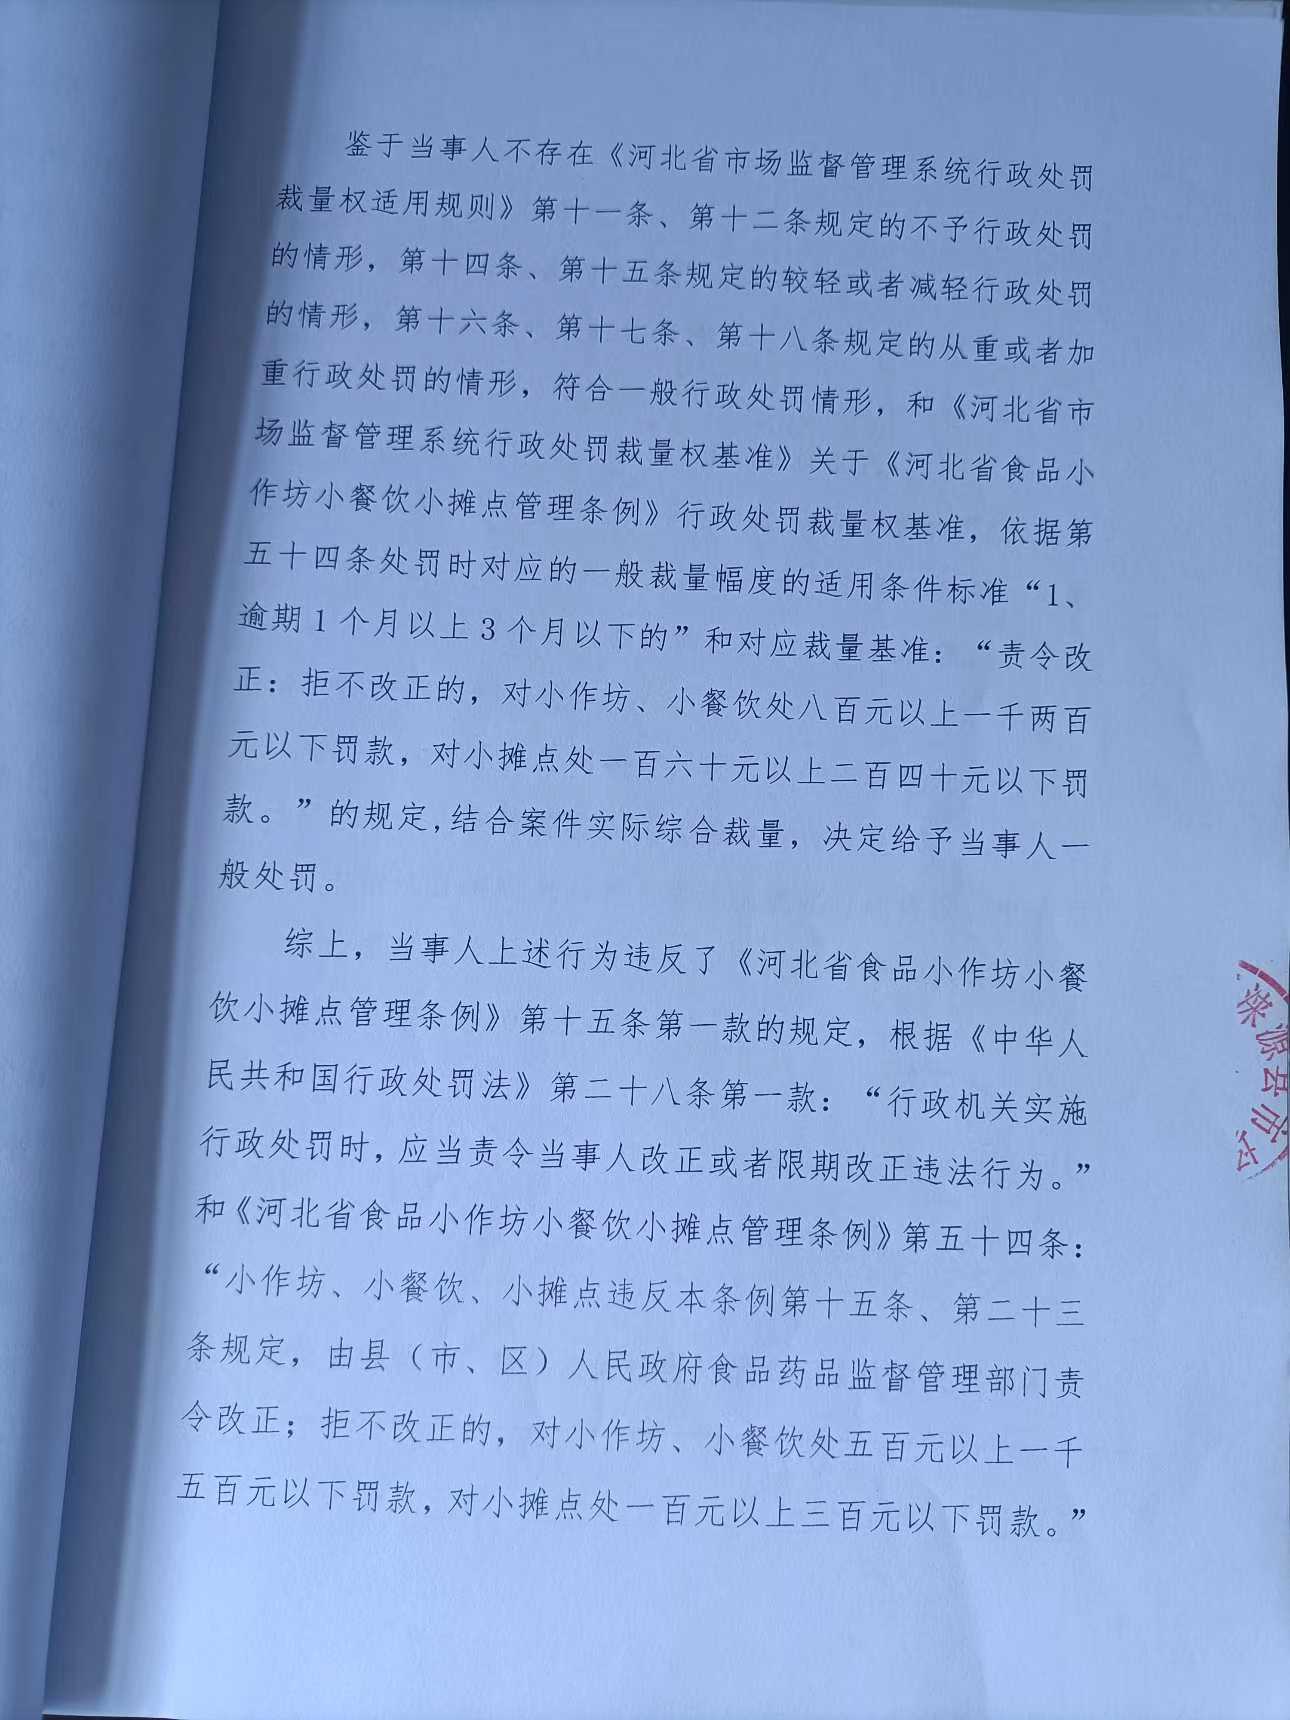 鉴于当事人不存在《河北省市场监督管理系统行政处罚
裁量权适用规则》第十一条、第十二条规定的不予行政处罚
的情形，第十四条、第十五条规定的较轻或者减轻行政处罚
的情形，第十六条、第十七条、第十八条规定的从重或者加
重行政处罚的情形，符合一般行政处罚情形，和《河北省市
场监督管理系统行政处罚裁量权基准》关于《河北省食品小
作坊小餐饮小摊点管理条例》行政处罚裁量权基准，依据第
五十四条处罚时对应的一般裁量幅度的适用条件标准“1、
逾期1个月以上3个月以下的”和对应裁量基准：“责令改
正：拒不改正的，对小作坊、小餐饮处八百元以上一千两百
元以下罚款，对小摊点处一百六十元以上二百四十元以下罚
款。”的规定,结合案件实际综合裁量，决定给予当事人一
般处罚。
综上，当事人上述行为违反了《河北省食品小作坊小餐
饮小摊点管理条例》第十五条第一款的规定，根据《中华人
民共和国行政处罚法》第二十八条第一款：“行政机关实施
行政处罚时，应当责令当事人改正或者限期改正违法行为。”
和《河北省食品小作坊小餐饮小摊点管理条例》第五十四条：
“小作坊、小餐饮、小摊点违反本条例第十五条、第二十三
条规定，由县（市、区）人民政府食品药品监督管理部门责
令改正；拒不改正的，对小作坊、小餐饮处五百元以上一千
五百元以下罚款，对小摊点处一百元以上三百元以下罚款。”
涞源县市